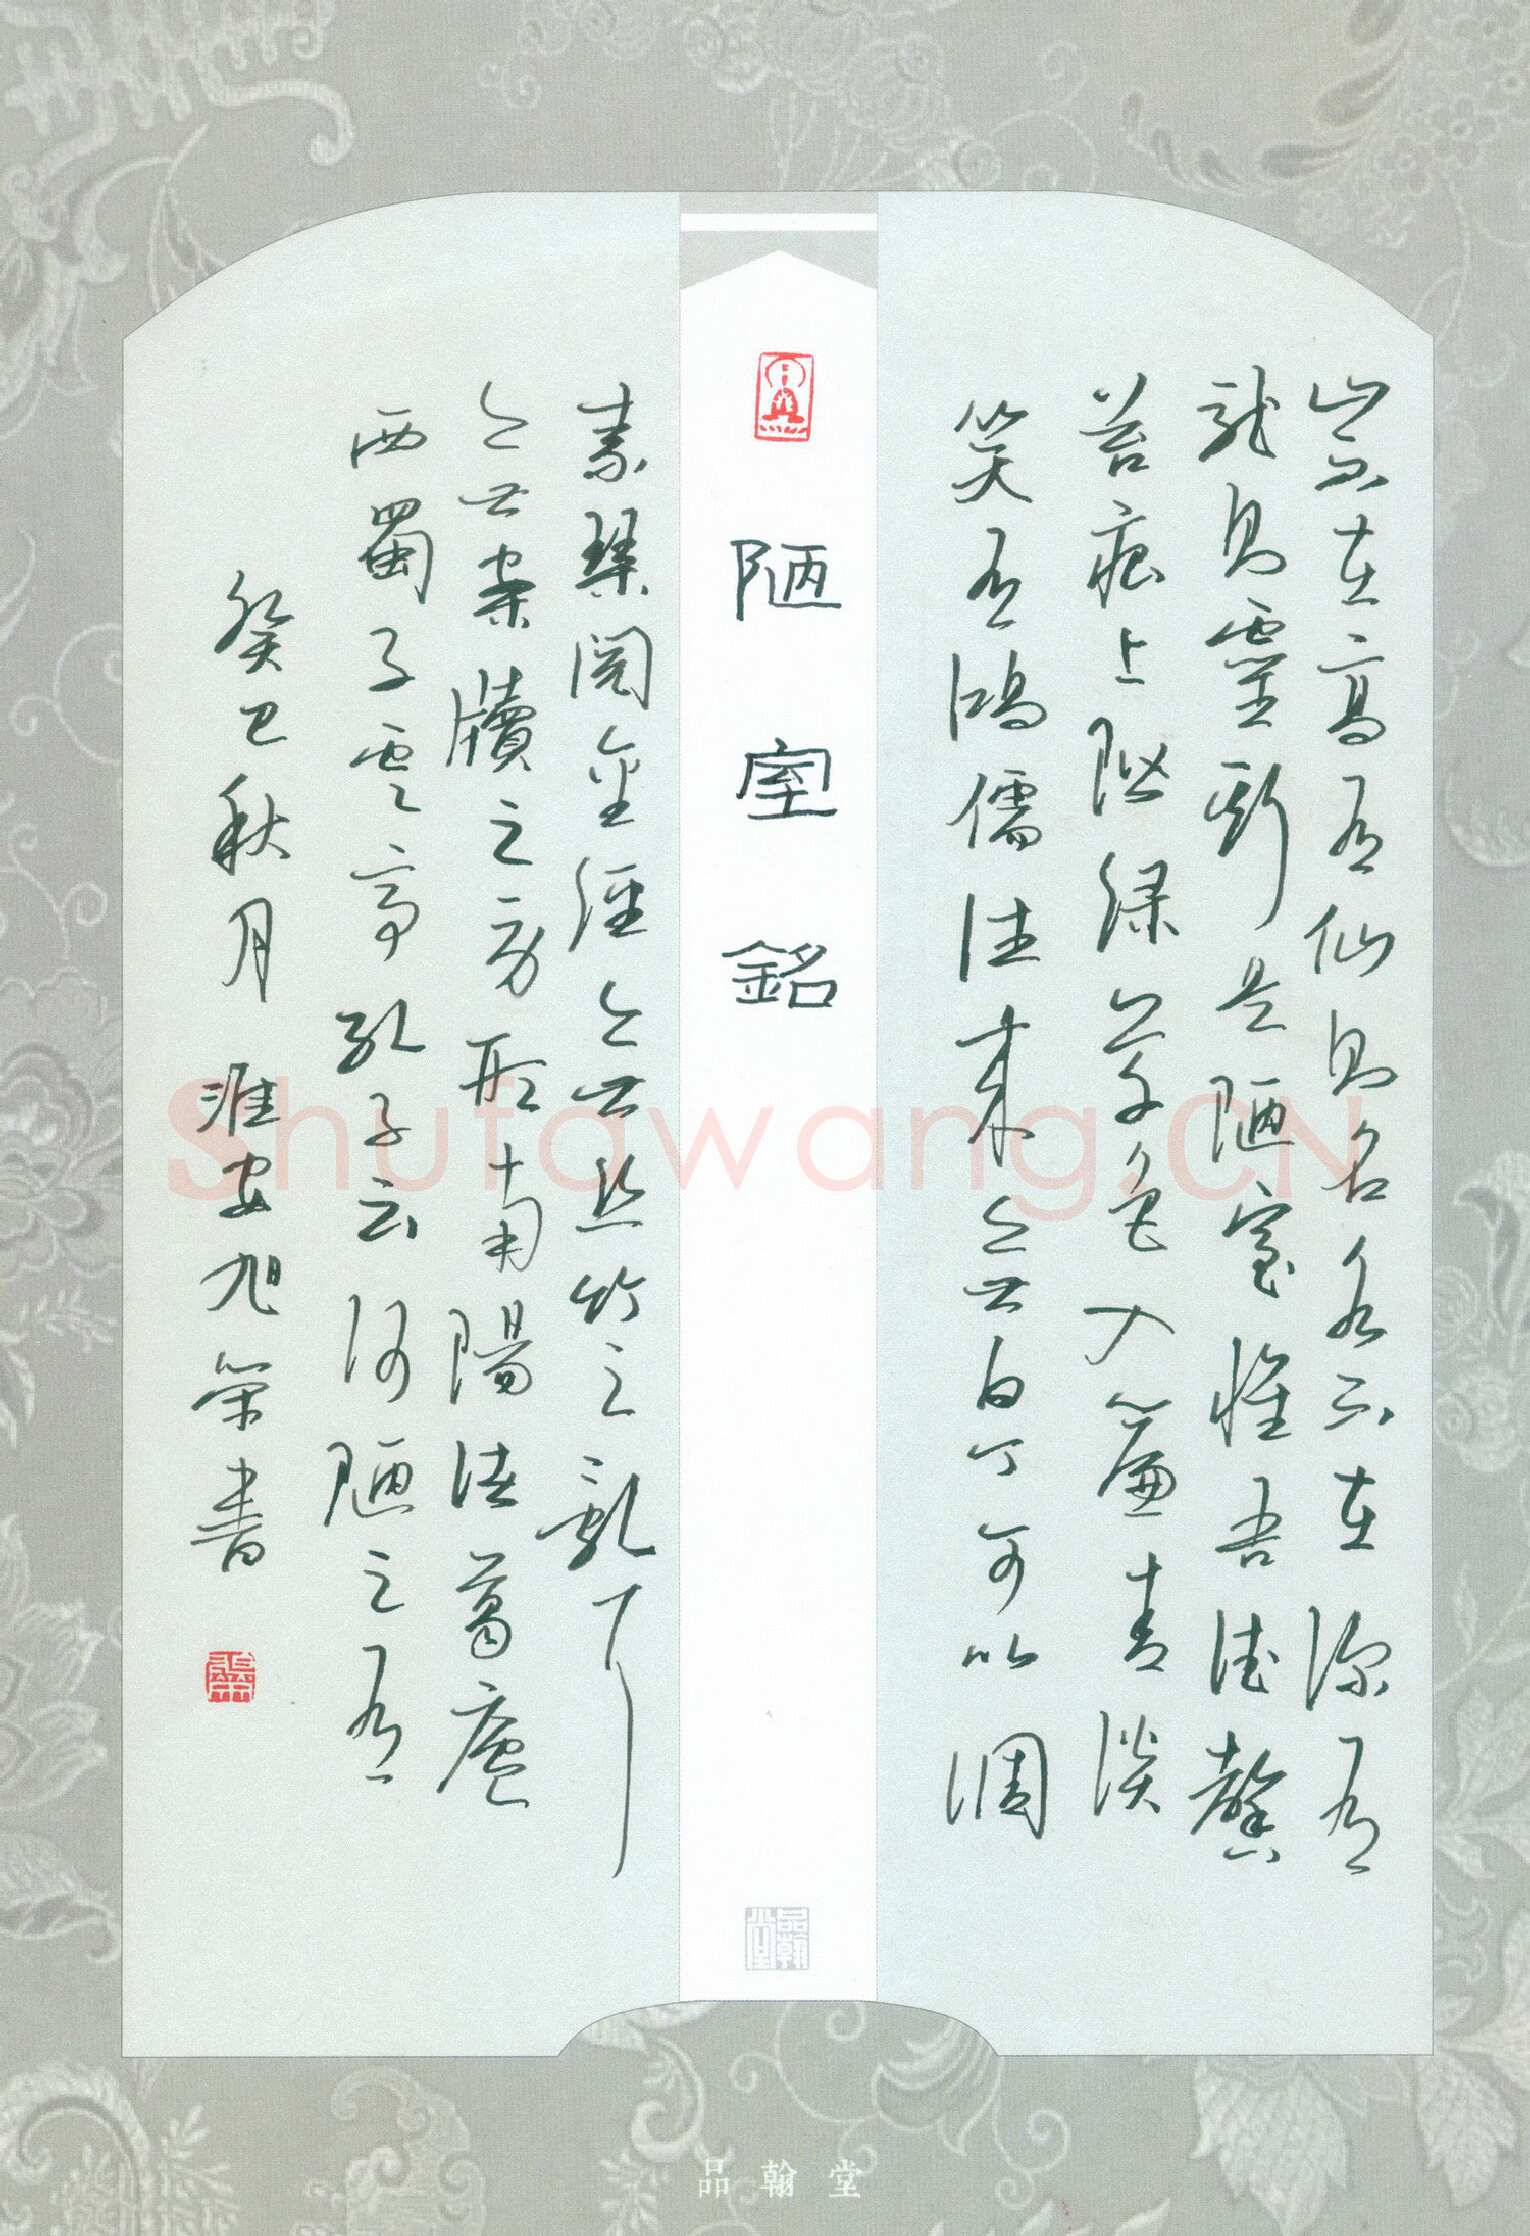 山不在高有仙則名水不在深有
龍則靈斯是陋室惟吾德馨
苔痕上階綠草色入簾青談
笑有鴻儒往來無白丁可以調
陋室銘
品翰堂
素琴閱金經無絲竹之亂耳
無案牘之勞形南陽諸葛廬
西蜀子雲亭孔子云何陋之有
癸巳秋月 淮安旭榮書
Shufawang.CN
品翰堂